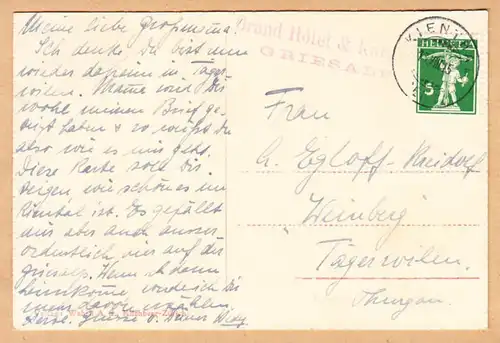 Meine liebe Grossmama!
Ich denke Du bist nun
wieder daheim in Täger-
wilen. Mame wird Dir
wohl meinen Brief ge-
zeigt haben & so weisst Du
also wie es mir geht.
Diese Karte soll Dir
zeigen wie schön es im
Kiental ist. Es gefällt
mir aber auch ausser-
ordentlich hier auf der
Griesalp. Wenn ich dann
heimkomme, werde ich Dir
mehr davon erzählen.
Herzl. Grüsse v. Deiner
Grand Hôtel & Kur
GRIESALP
KIENTAL
HELVETIA
5
Frau
A. Egloff-Neidolf
"Weinberg"
Tägerwilen.
Thurgau.